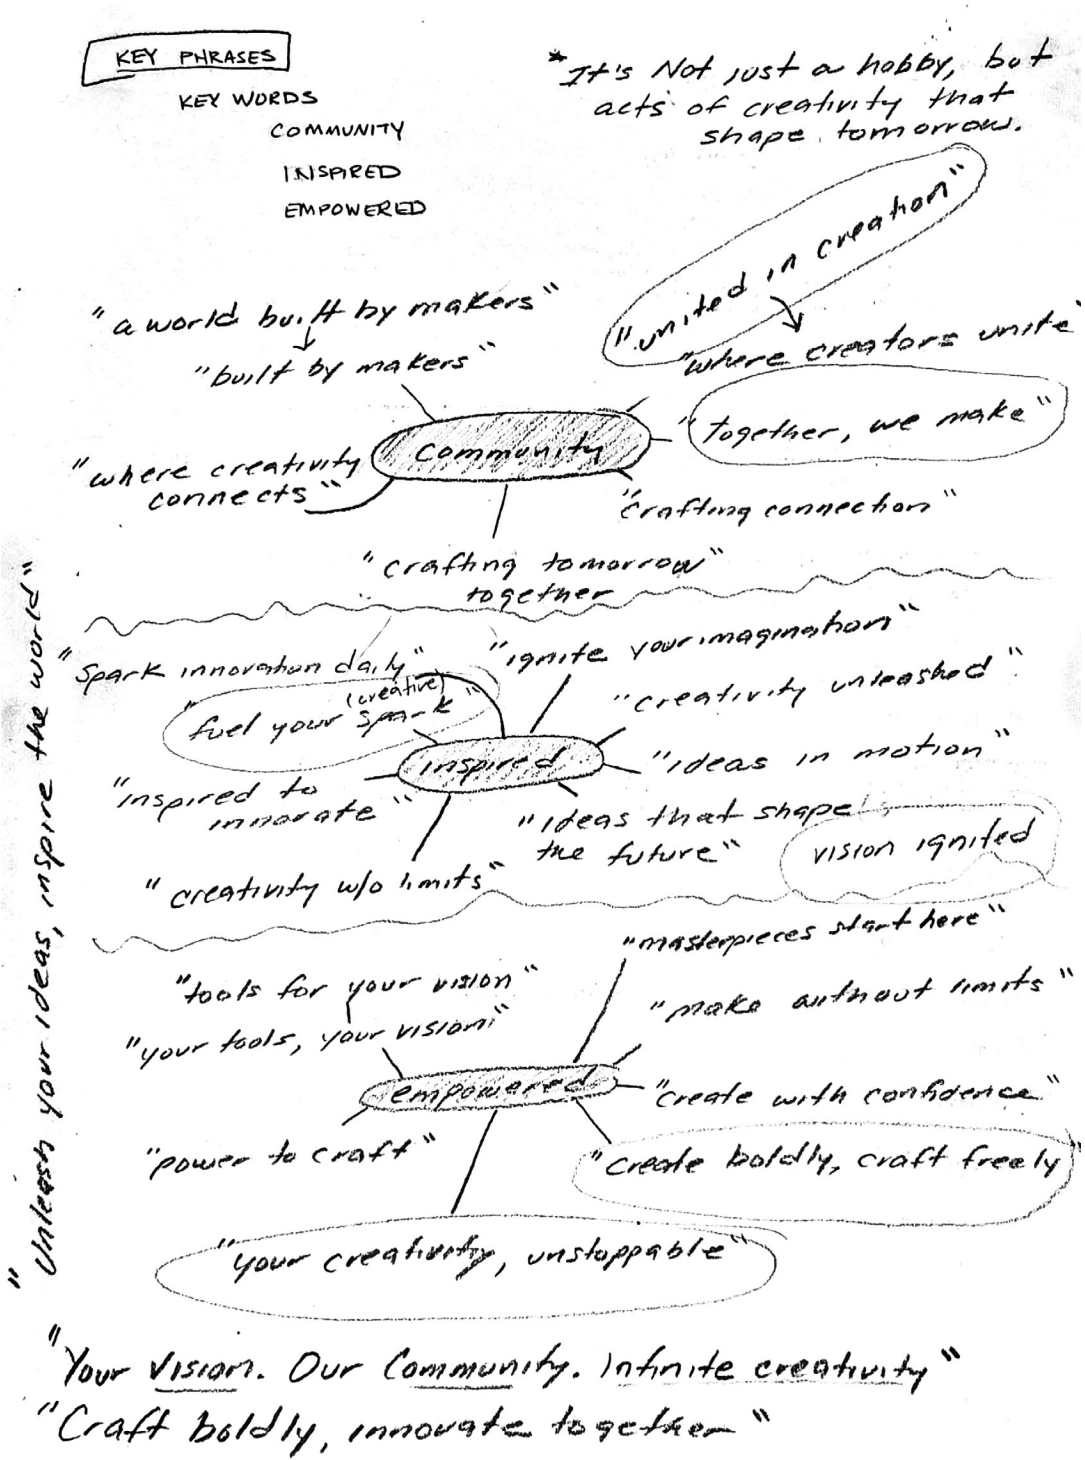 KEY PHRASES
KEY WORDS
COMMUNITY
INSPIRED
EMPOWERED
*It's Not just a hobby, but
acts of creativity that
shape tomorrow.
"united in creation"
"where creators unite"
"a world built by makers"
"built by makers"
"together, we make"
community
"where creativity
connects"
"crafting connection"
"crafting tomorrow"
together
"Spark innovation daily"
"ignite your imagination"
(creative)
"fuel your spark"
"creativity unleashed"
inspired
"ideas in motion"
"inspired to
innovate"
"ideas that shape
the future"
vision ignited
"creativity w/o limits"
"masterpieces start here"
"tools for your vision"
"make without limits"
"your tools, your vision"
empowered
"create with confidence"
"power to craft"
"create boldly, craft freely"
"your creativity, unstoppable"
"Unleash your ideas, inspire the world"
"Your Vision. Our Community. Infinite creativity"
"Craft boldly, innovate together"